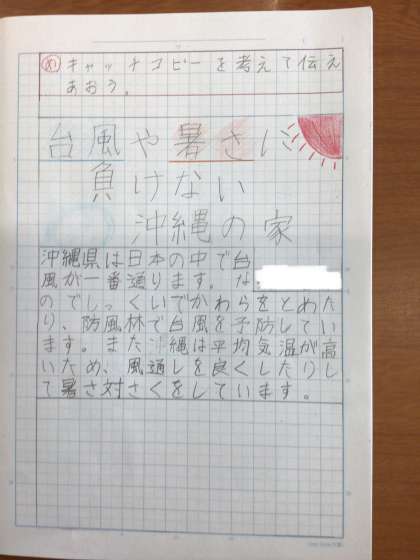 め キャッチコピーを考えて伝え
あおう。
台風や暑さに
負けない
沖縄の家
沖縄県は日本の中で台
風が一番通ります。な
のでしっくいでかわらをとめた
り、防風林で台風を予防してい
ます。また沖縄は平均気温が高
いため、風通しを良くしたりし
て暑さ対さくをしています。